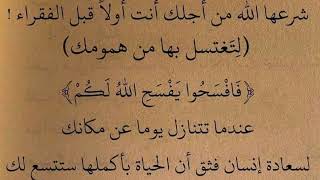 شرعها الله من أجلك أنت أولاً قبل الفقراء !
(لِتَغتسل بها من همومك)
﴿فَافْسَحُوا يَفْسَحِ اللهُ لَكُمْ﴾
عندما تتنازل يوما عن مكانك
لسعادة إنسان فثق أن الحياة بأكملها ستتسع لك